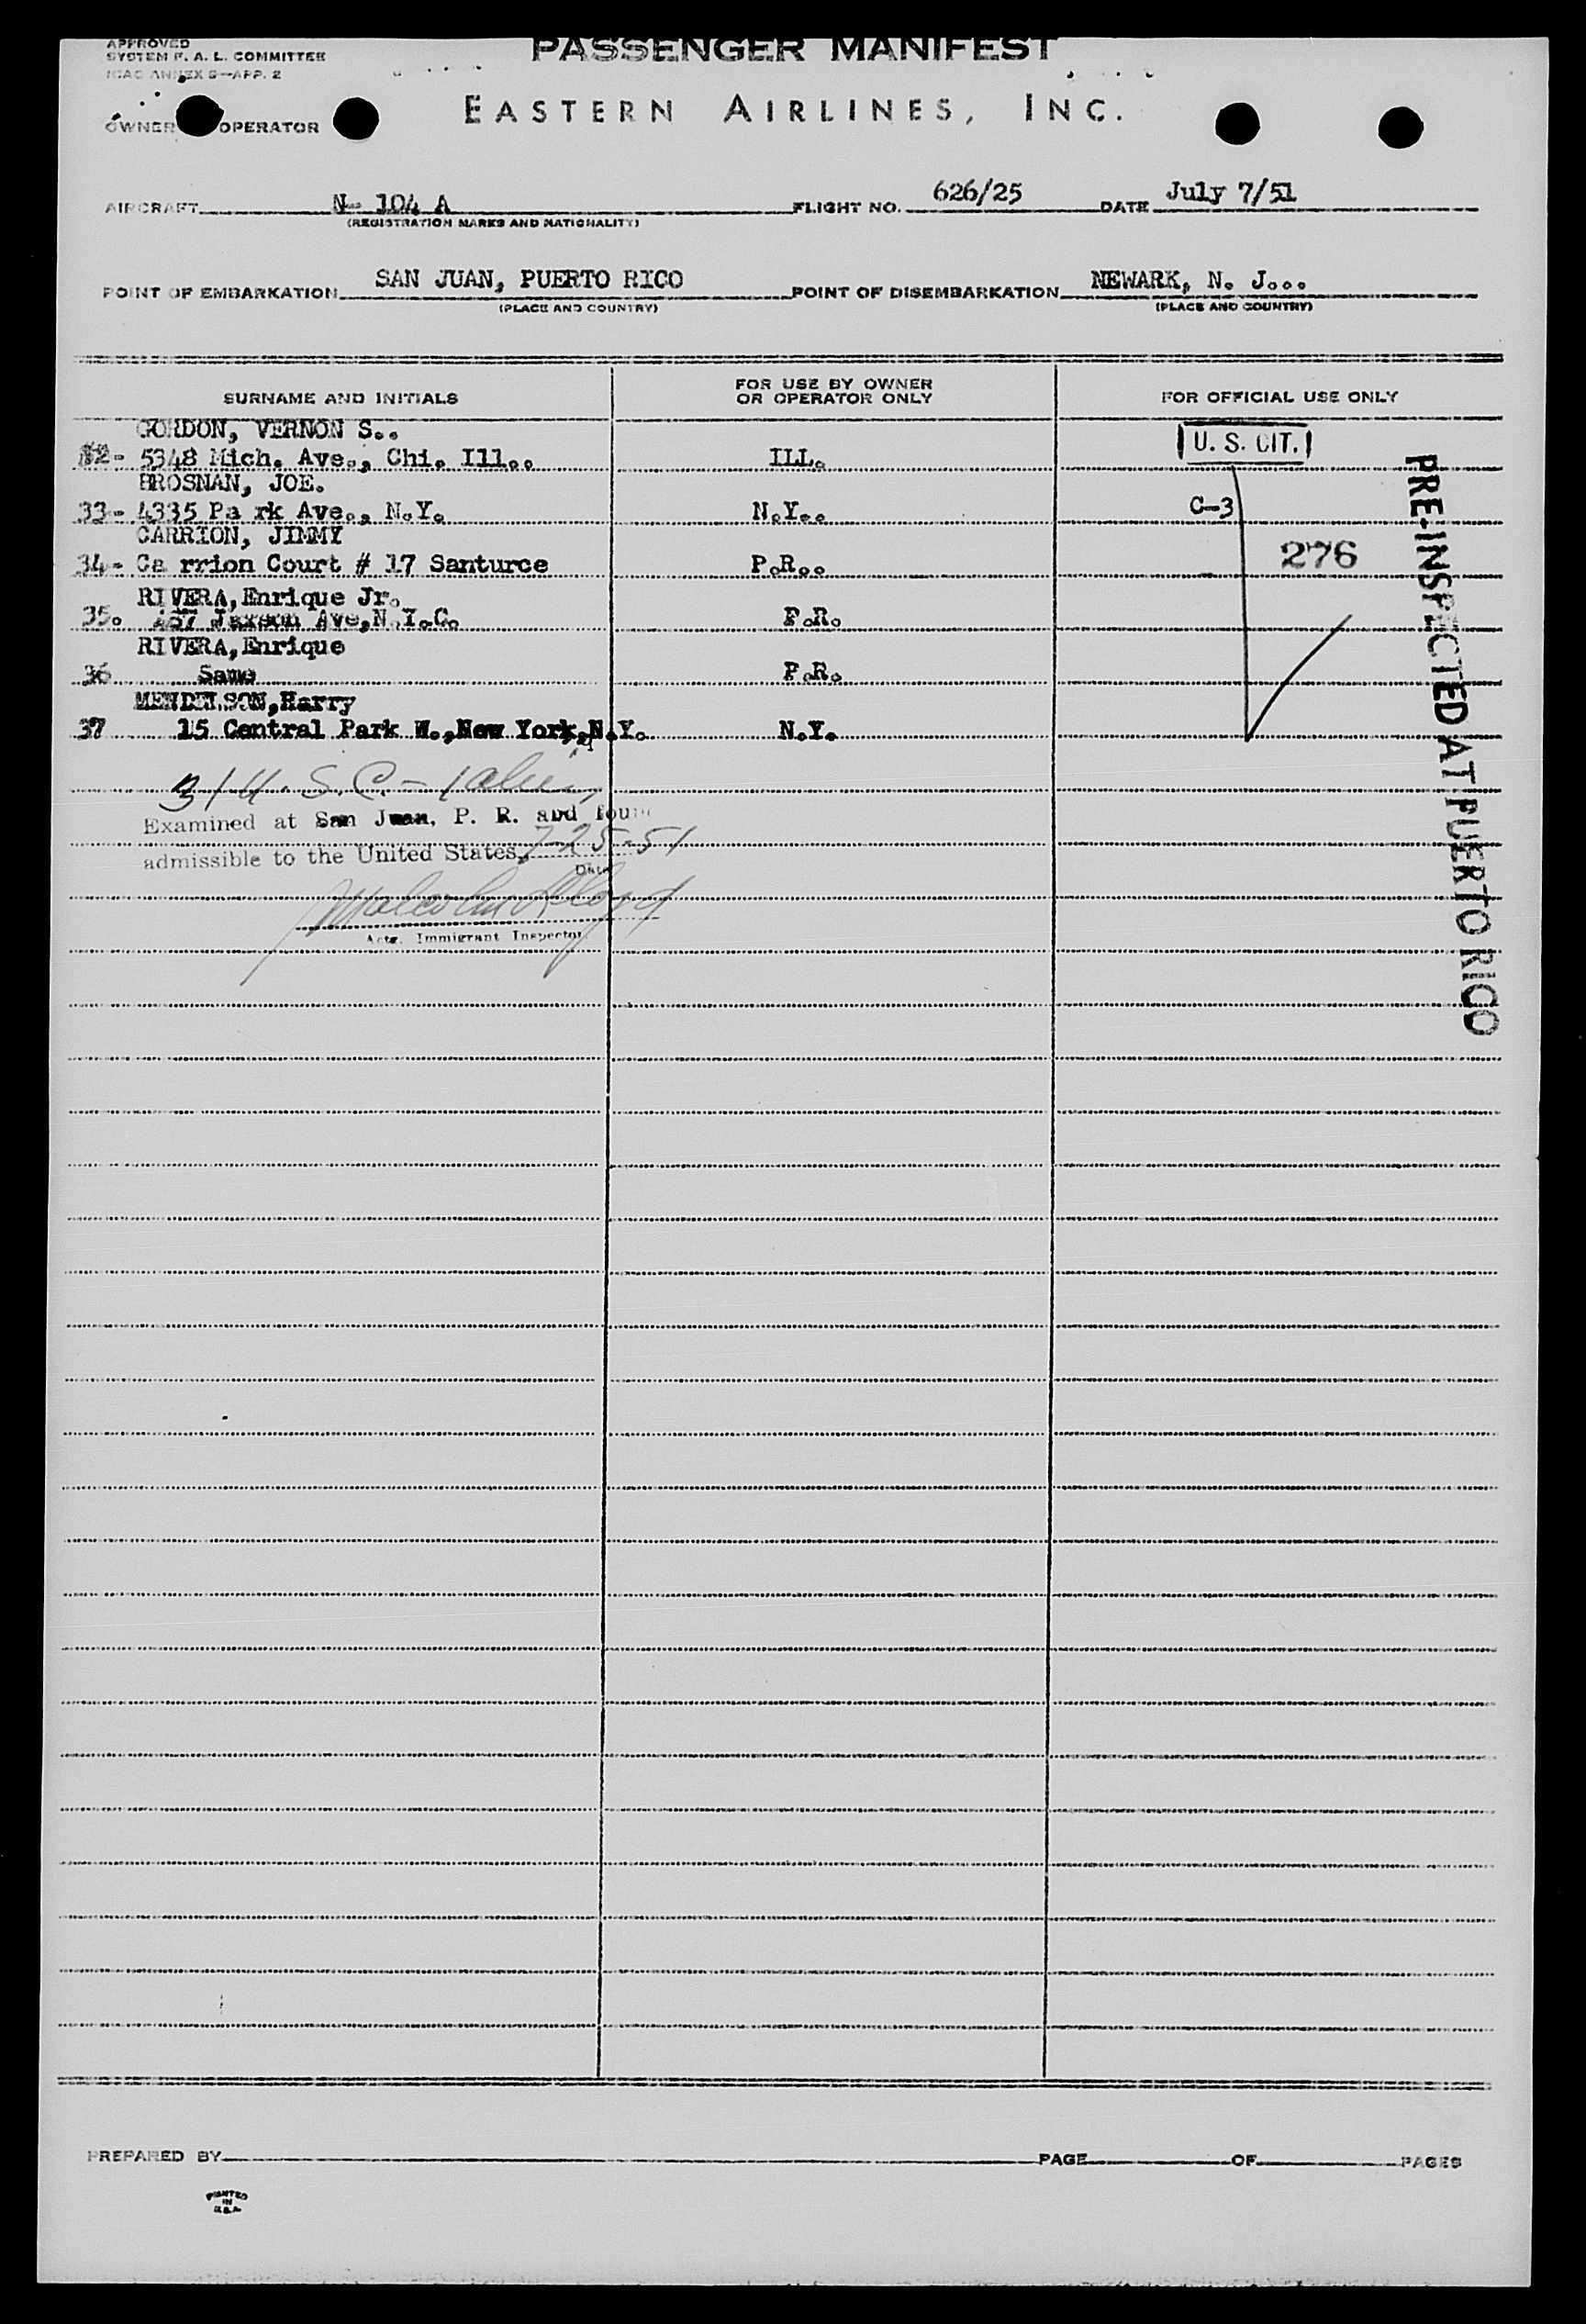 APPROVED
SYSTEM F. A. L. COMMITTEE
ICAO ANNEX 9—APP. 2
PASSENGER MANIFEST
EASTERN AIRLINES, INC.
OWNER OPERATOR
AIRCRAFT N- 104 A FLIGHT NO. 626/25 DATE July 7/51
(REGISTRATION MARKS AND NATIONALITY)
POINT OF EMBARKATION SAN JUAN, PUERTO RICO POINT OF DISEMBARKATION NEWARK, N. J...
(PLACE AND COUNTRY) (PLACE AND COUNTRY)
SURNAME AND INITIALS FOR USE BY OWNER OR OPERATOR ONLY FOR OFFICIAL USE ONLY
GORDON, VERNON S..
32- 5348 Mich. Ave., Chi. Ill.. ILL. U. S. CIT.
BROSNAN, JOE.
33- 4335 Pa rk Ave., N.Y. N.Y.. C-3
CARRION, JIMMY
34- Ca rrion Court # 17 Santurce P.R.. 276
RIVERA,Enrique Jr.
35. Ave,N.Y.C. P.R.
RIVERA,Enrique
36 Same P.R.
MENDELSON,Harry
37 15 Central Park W.,New York,N.Y. N.Y.
31 U.S.C. - 1 alien
Examined at San Juan, P. R. and foun
admissible to the United States, 7-25-51
Date
Malcolm Lloyd
Actg. Immigrant Inspector
PRE-INSPECTED AT PUERTO RICO
PREPARED BY PAGE OF PAGES
PRINTED
IN
U.S.A.